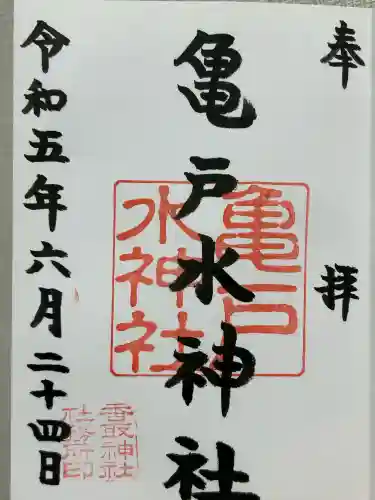 奉拝
亀戸水神社
亀戸
水神社
令和五年六月二十四日
香取神社
社務所印